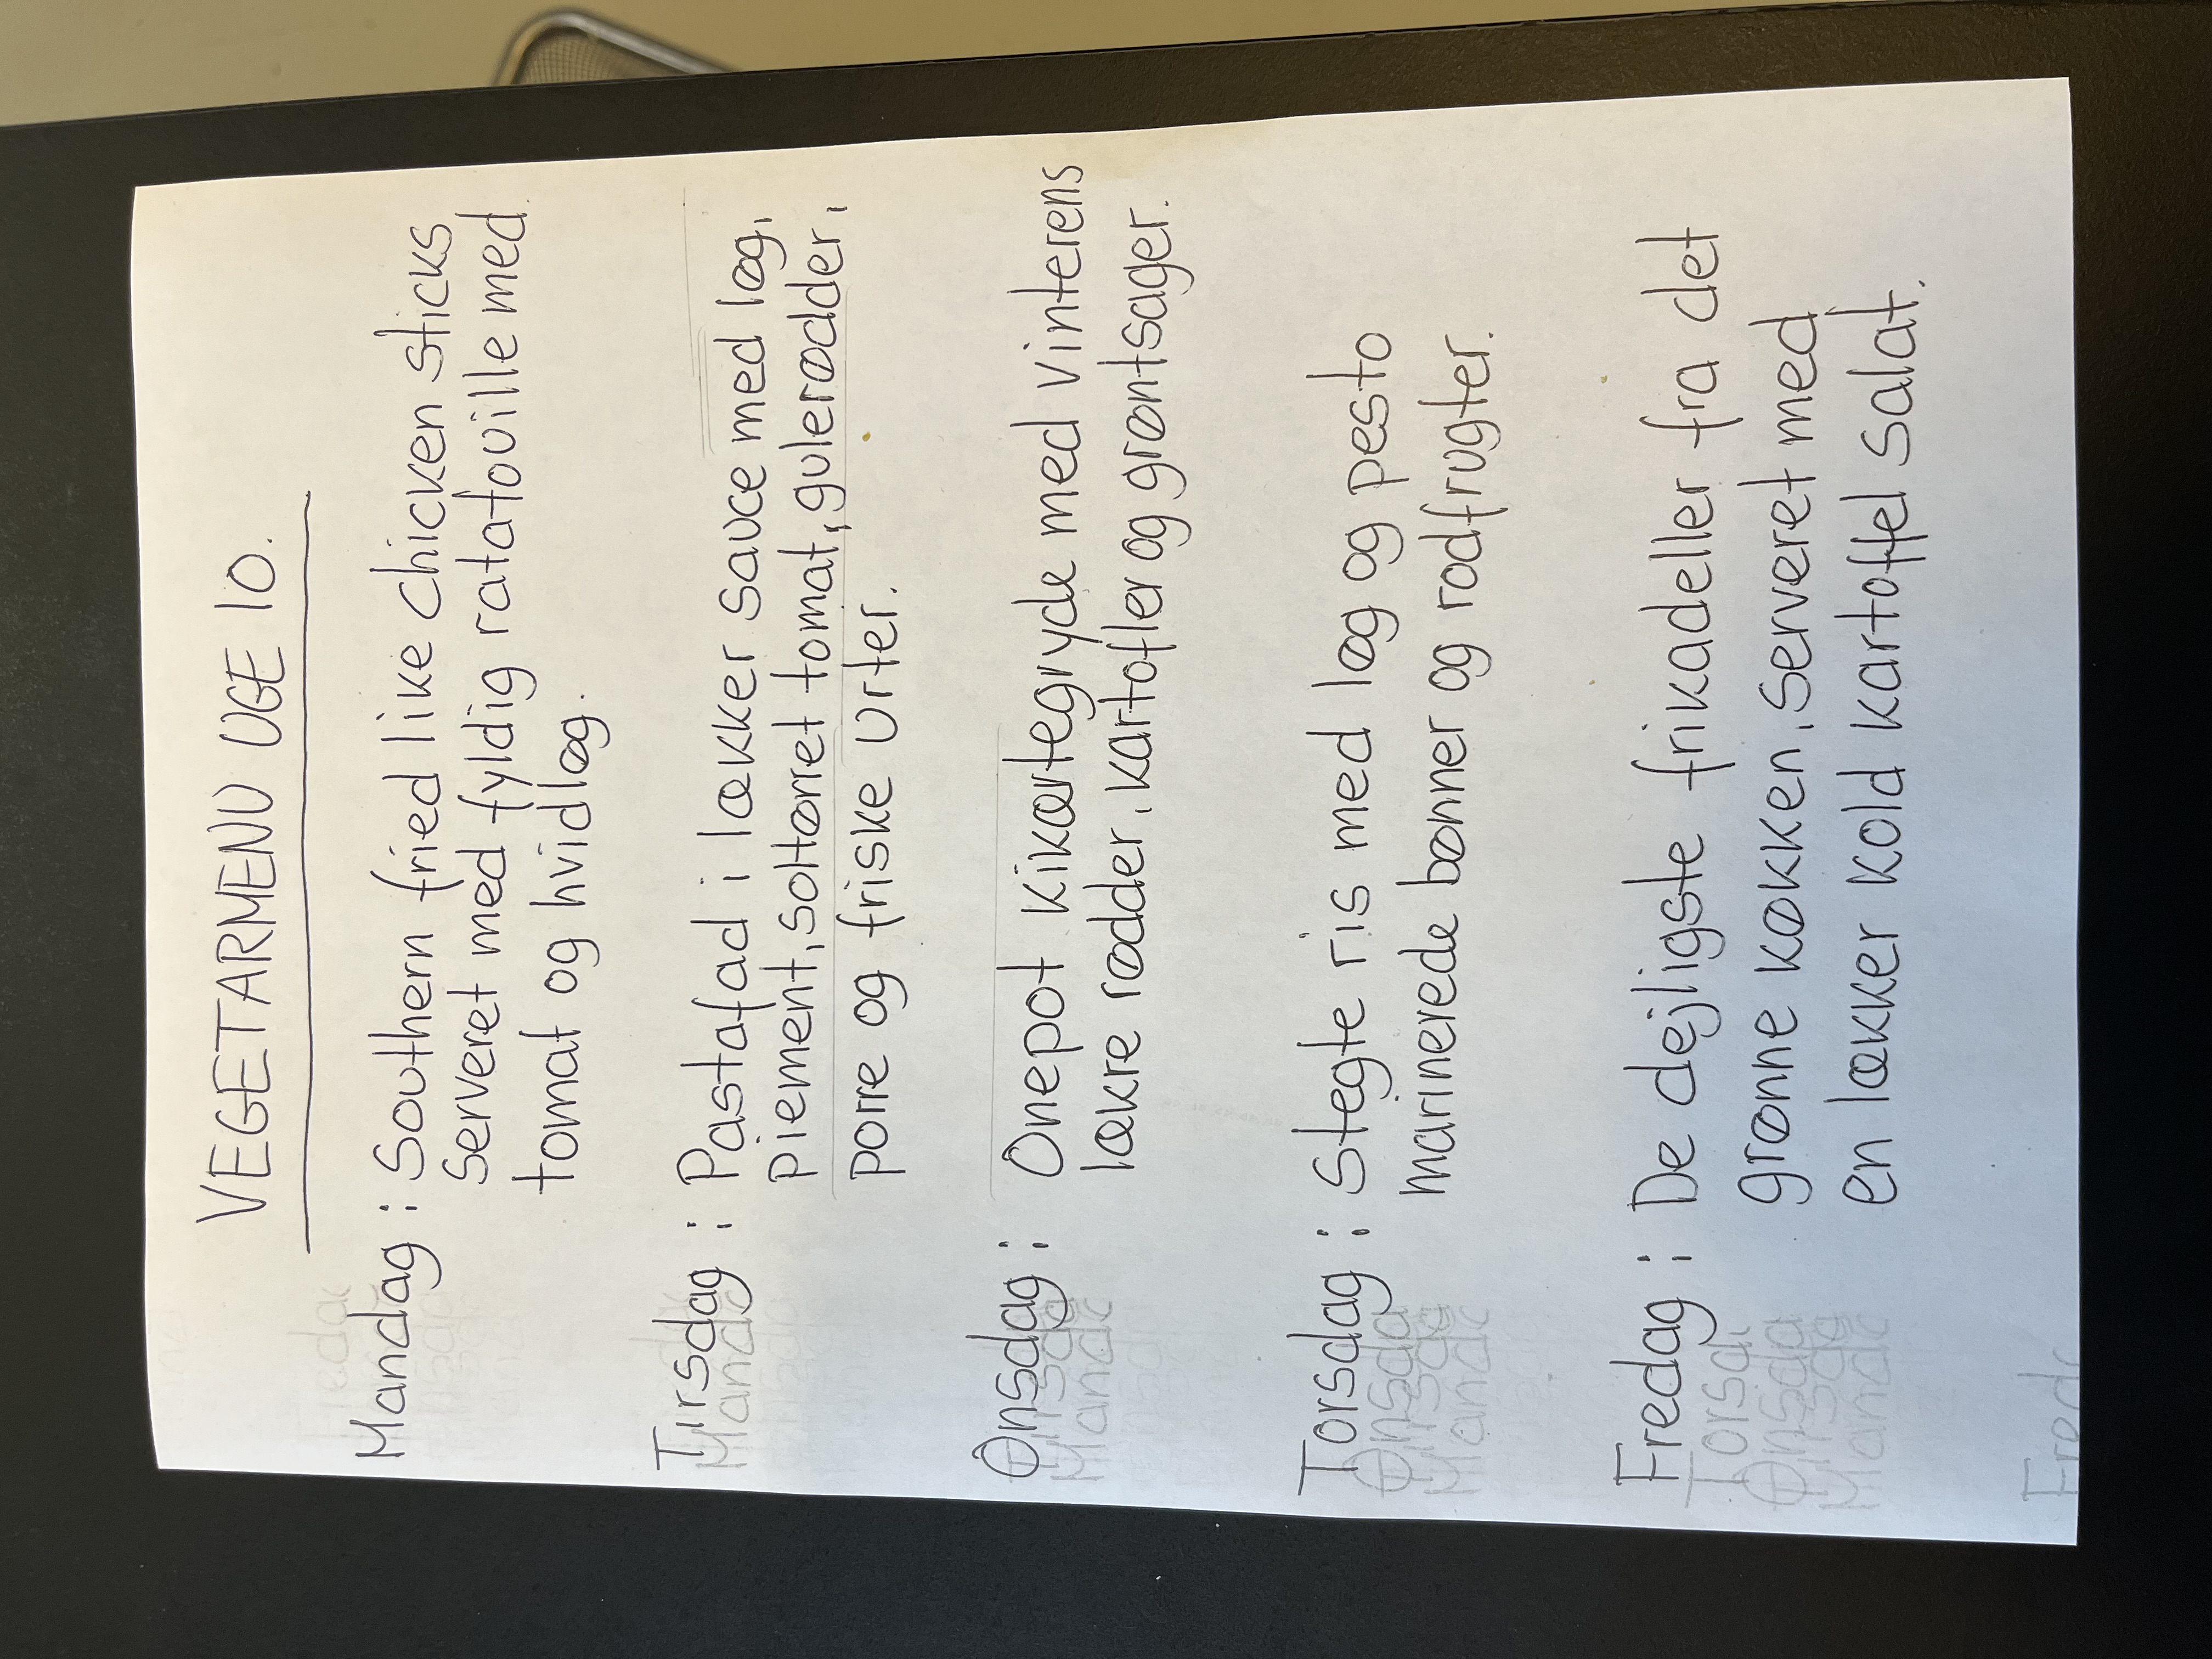 VEGETARMENU UGE 10.
Mandag : Southern fried like chicken sticks
serveret med fyldig ratatouille med
tomat og hvidløg.
Tirsdag : Pastafad i lækker sauce med løg,
piement, soltørret tomat, gulerødder,
porre og friske urter.
Onsdag : Onepot kikærtegryde med vinterens
lækre rødder, kartofler og grøntsager.
Torsdag : Stegte ris med løg og pesto
marinerede bønner og rodfrugter.
Fredag : De dejligste frikadeller fra det
grønne køkken, serveret med
en lækker kold kartoffel salat.